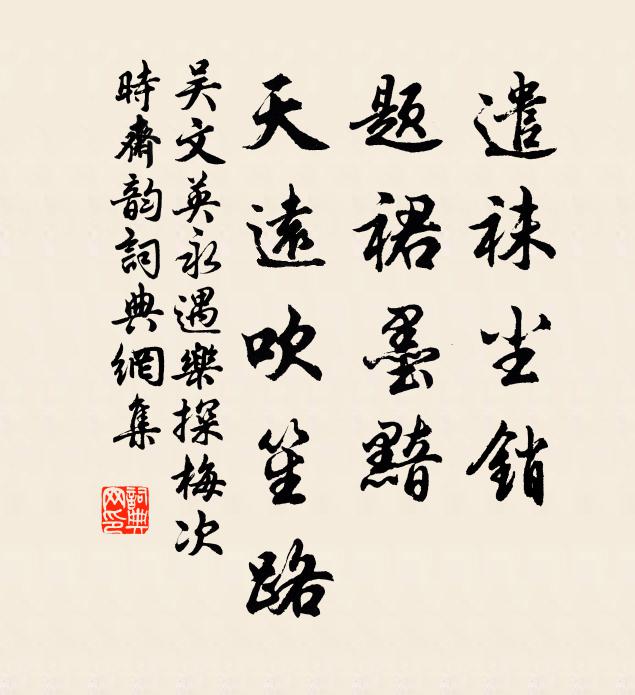 遣袜尘銷
題裙墨黯
天遠吹笙路
吴文英永遇樂探梅次
時齋韵詞典網集
詞典网印